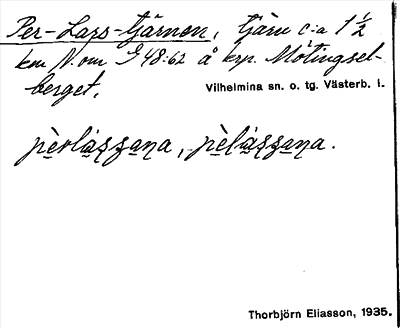 Per-Lars-tjärnen, tjärn c:a 1 ½
km N. om S 48:62 å krp. Mötingsel-
berget.
Vilhelmina sn. o. tg. Västerb. l.
Thorbjörn Eliasson, 1935.